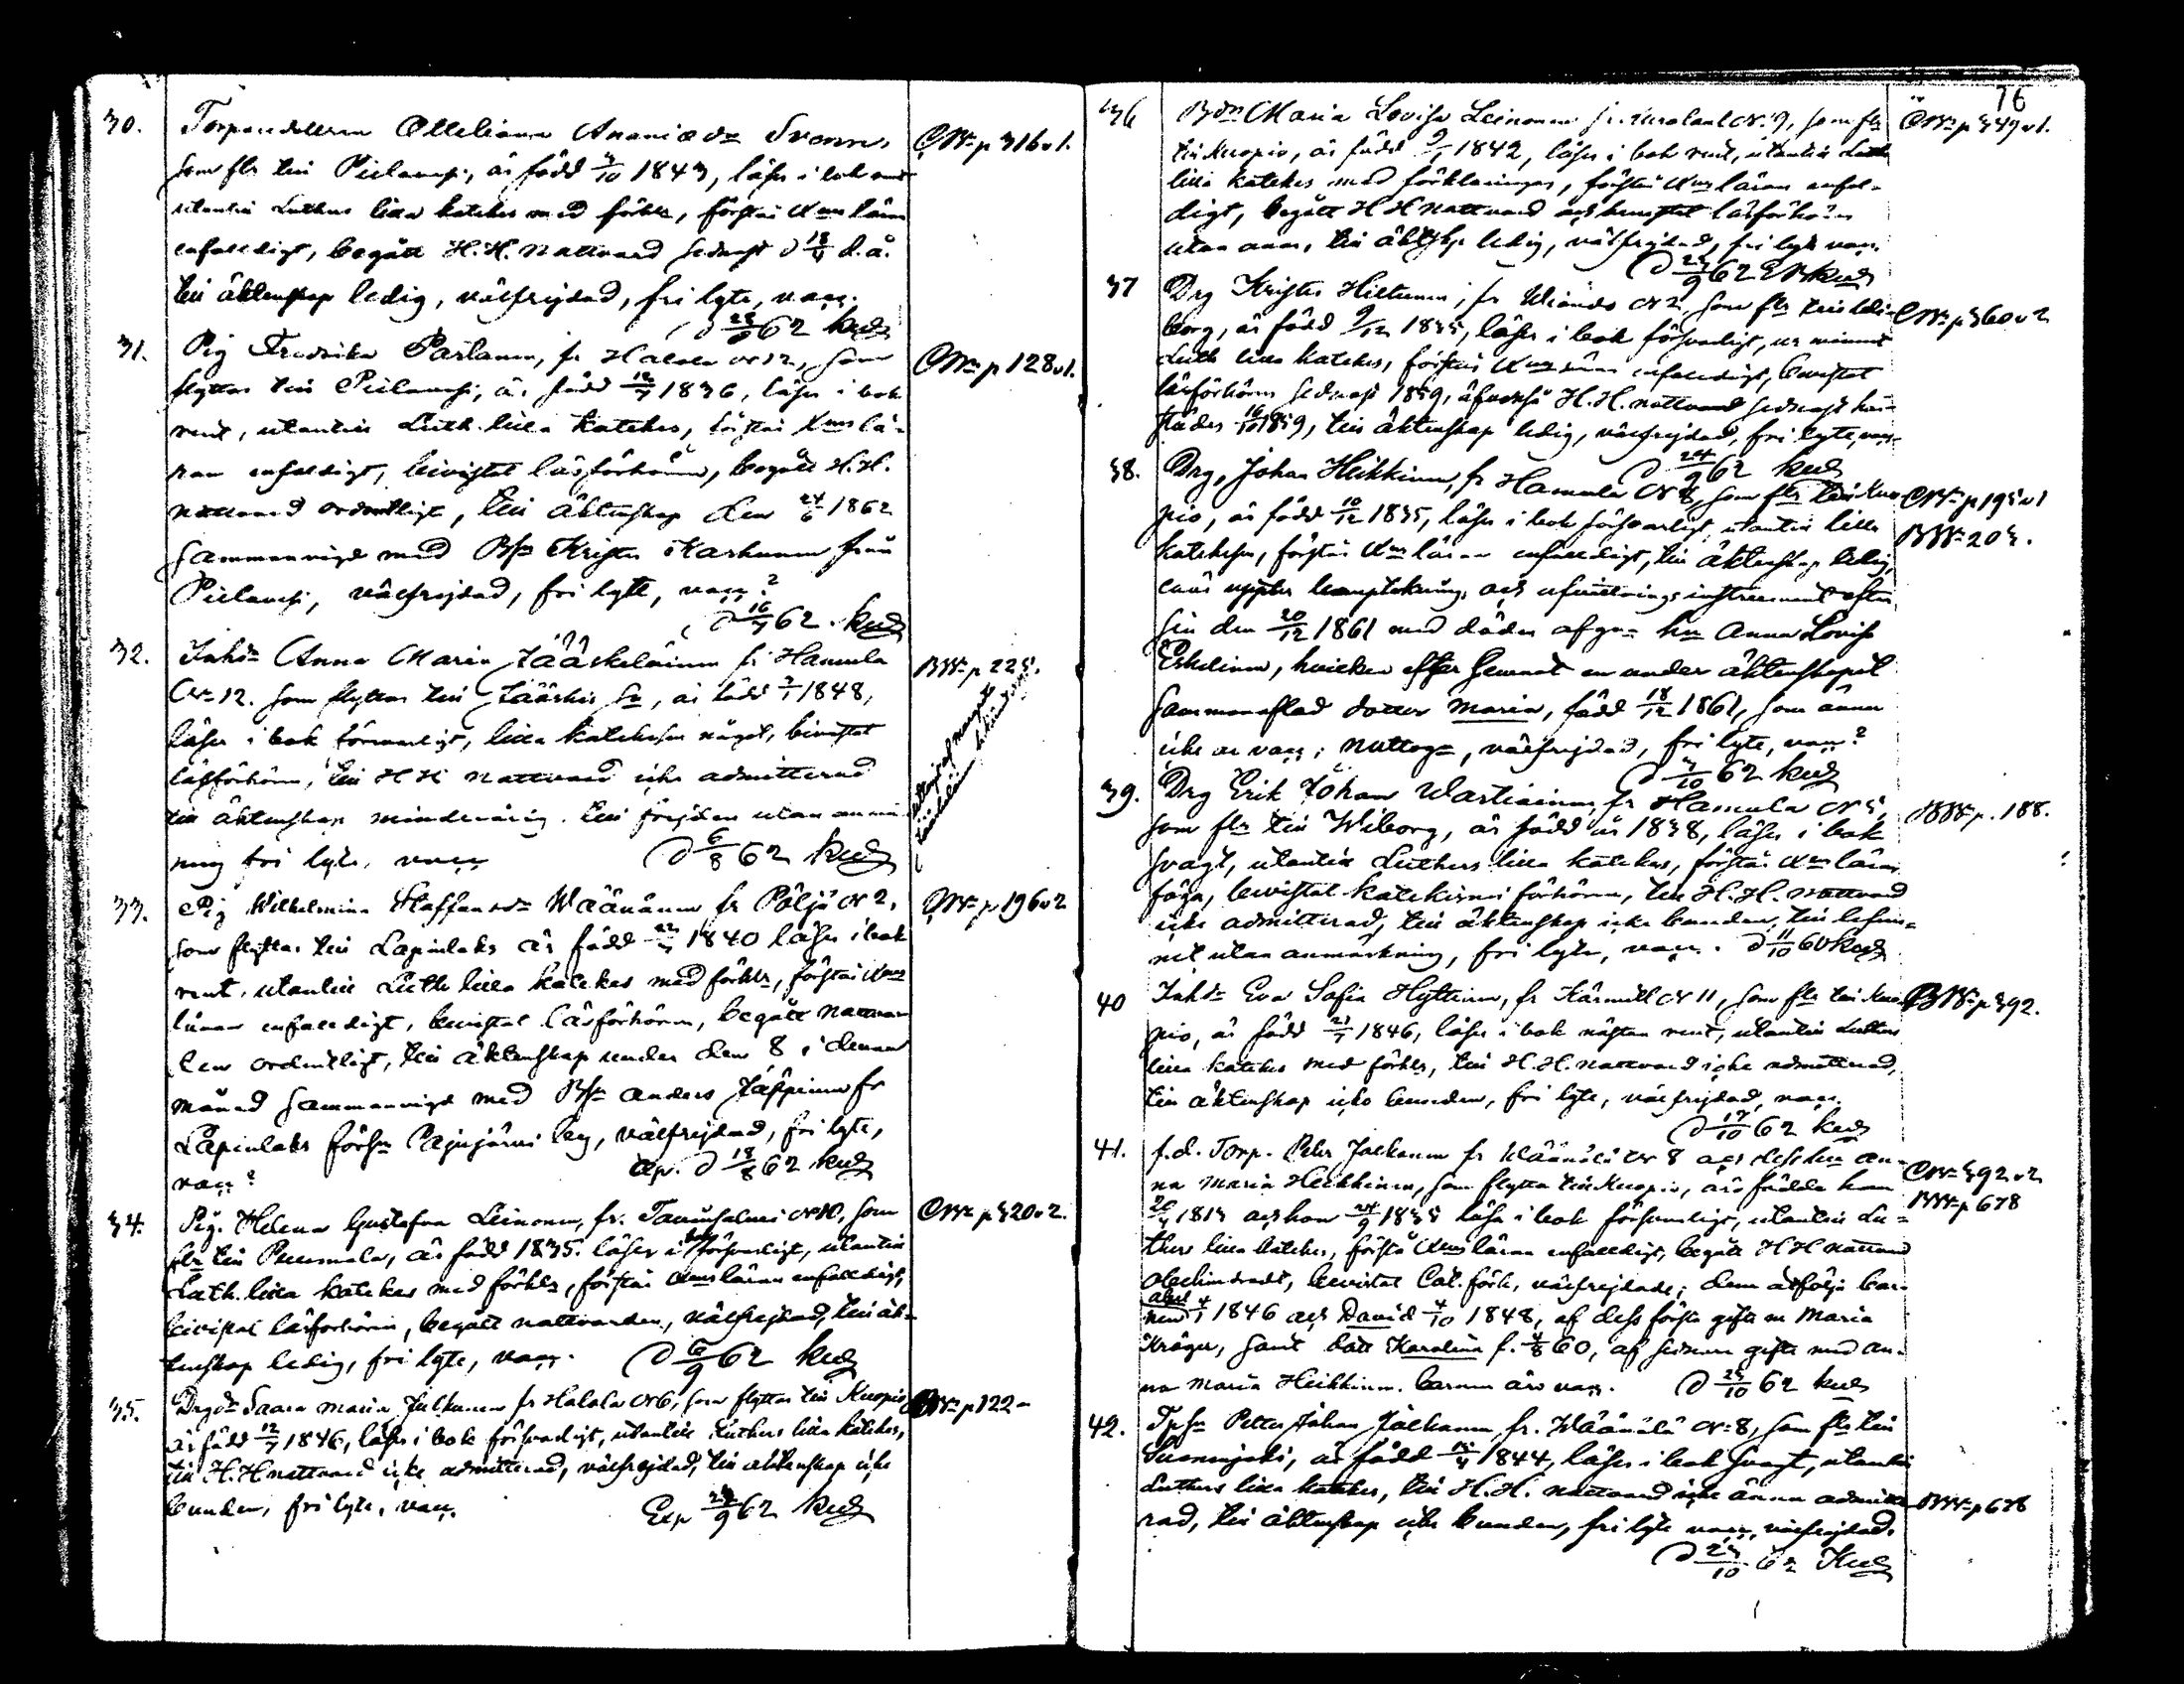 76
30. Torparedottern Ottiliana Ananiædr Svenn, CNr p 316 v 1.
som flr till Pielavesi, är född 3/10 1843, läser i bok rent
utantill Luthers lilla kateches med förklr, förstår Xms läran
enfaldigt, begått H. H. Nattvard sednast d 18/4 d. å.
till äktenskap ledig, välfrejdad, fri lyte, vacc.
62
31. Pig Fredrika Parlanen, fr Halola Nr 12, som CNr p 128 v 1.
flyttar till Pielavesi, är född 12/7 1836, läser i bok
rent, utantill Luth. lilla kateches, förstår Xms lä-
ran enfaldigt, bevistat läsförhören, begått H. H.
nattvard ordentligt, till äktenskap den 24/6 1862
sammanvigd med Krister Karhunen från
Pielavesi, välfrejdad, fri lyte, vacc?
d 16/7 62.
32. Inhdr Anna Maria Jääskeläinen fr Hamula BNr p 225.
Nr 12. som flyttar till Jääskis Sn, är född 3/1 1848,
läser i bok försvarligt, lilla katechesen något, bevistat
läsförhören, till H H Nattvard icke admitterad
till äktenskap minderårig. till frejden utan anmärk-
ning fri lyte, vacc d 6/8 62
33. Pig Wilhelmina Staffansdr Wäänänen fr Pöljä Nr 2, CNr p 196 v 2
som flyttar till Lapinlaks är född 22/7 1840 läser i bok
rent, utantill Luth lilla kateches med förklr, förstår Xms
läran enfaldigt, bevistat läsförhören, begått Nattvar-
den ordentligt, till äktenskap under den 8 i denna
månad sammanvigd med Anders Jäppinen fr
Lapinlaks förs:n Pajujärvi by, välfrejdad, fri lyte,
vacc? d 18/8 62
34. Pig. Helena Gustafva Leinonen, fr. Taivalharju Nr 10, som CNr p 320 v 2.
flr till Puumala, är född 1835. läser i bok försvarligt, utantill
Luth. lilla kateches med förklr, förstår Xms läran enfaldigt,
bevistat läsförhören, begått nattvarden, välfrejdad, till äk-
tenskap ledig, fri lyte, vacc. d 6/9 62
35. Drgdr Saara Maria Julkunen fr Halola Nr 6, som flyttar till Kuopio BNr p 122
är född 12/7 1846, läser i bok försvarligt, utantill Luthers lilla kateches,
till H. H nattvard icke admitterad, välfrejdad, till äktenskap icke
bunden, fri lyte, vacc. Exp 62
36 Maria Lovisa Leinonen Nr 9, som flr CNr p 349 v 1.
till Kuopio, är född 1842, läser i bok rent, utantill Luth
lilla kateches med förklaringar, förstår Xms läran enfal-
digt, begått H H nattvard och bevistat läsförhören
utan anm, till äktskp ledig, välfrejdad, fri lyte vacc.
62
37 Drg Krister Hiltunen, fr Nr 2, som flr till Wi- CNr p 360 v 2
borg, är född 9/12 1835, läser i bok försvarligt, ur minnet
Luth lilla kateches, förstår Xms läran enfaldigt, bevistat
läsförhören sednast 1859, äfvenså H. H. nattvard sednast här-
städes 1859, till äktenskap ledig, välfrejdad, fri lyte, vacc.
d 24/9 62
38. Drg, Johan Heikkinen, fr Hamula Nr 8, som flr till Kuo- CNr p 195 v 1
pio, är född 10/12 1835, läser i bok försvarligt, utantill lilla BNr 203.
katechesen, förstår Xms läran enfaldigt, till äktenskap ledig,
och afvittrings instrument efter
sin den 20/12 1861 med döden afgn hu Anna Lovisa
Eskelinen, hvilken efter lemnat en under äktenskapet
sammanaflad dotter Maria, född 18/12 1861, som ännu
icke är vacc; välfrejdad, fri lyte, vacc?
d 3/10 62
39. Drg Erik Johan Wartiainen, fr Hamula Nr 5, BNr p. 188.
som flr till Wiborg, är född år 1838, läser i bok
svagt, utantill Luthers lilla kateches, förstår Xms läran
föga, bevistat katekismi förhören, till H. H. Nattvard
icke admitterad, till äktenskap icke bunden, till lefver-
net utan anmärkning, fri lyte, vacc. d 11/10
40 Inhdr Eva Sofia Hyttinen, fr Nr 11, som flr till Kuo- BNr p 392.
pio, är född 1846, läser i bok nästan rent, utantill Luthers
lilla kateches med förklr, till H. H. nattvard icke admitterad,
till äktenskap icke bunden, fri lyte, välfrejdad, vacc.
d 17/10 62
41. f. d. Torp. Petter Jalkanen fr Wäänälä Nr 8 och dess hu An- CNr 392 v 2
na Maria Heikkinen, som flytta till Kuopio, äro födda han BNr p 678
1813 och hon 24/9 1835 läsa i bok försvarligt, utantill Lu-
thers lilla kateches, förstå Xms läran enfaldigt, begått H H nattvard
obehindradt, bevistat Cat. förh, välfrejdade; dem åtfölja bar-
nen Abel 1846 och David 4/10 1848, af dess första gifte m Maria
Kröger, samt dottr Karolina f. 4/8 60, af sednare gifte med An-
na Maria Heikkinen. barnen äro vacc. d 25/10 62
42. Petter Johan Jalkanen, fr. Wäänälä Nr 8, som flr till
Suonenjoki, är född 1844, läser i bok svagt, utantill
Luthers lilla kateches, till H. H. nattvard icke ännu admitte- BNr p 678
rad, till äktenskap icke bunden, fri lyte vacc, välfrejdad.
62